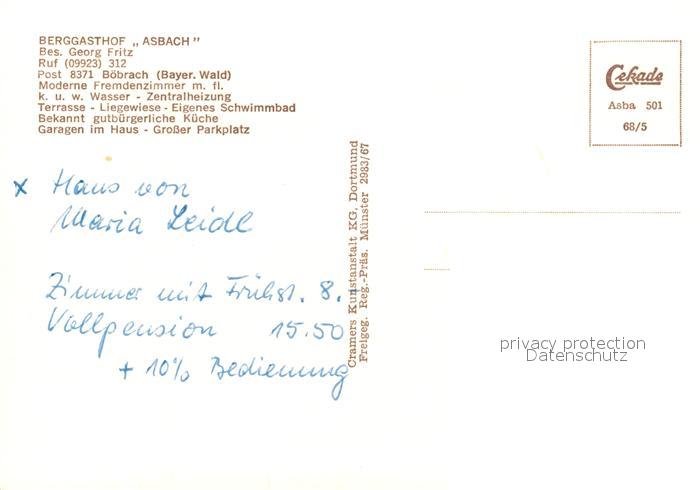 BERGGASTHOF „ASBACH"
Bes. Georg Fritz
Ruf (09923) 312
Post 8371 Böbrach (Bayer. Wald)
Moderne Fremdenzimmer m. fl.
k. u. w. Wasser - Zentralheizung
Terrasse - Liegewiese - Eigenes Schwimmbad
Bekannt gutbürgerliche Küche
Garagen im Haus - Großer Parkplatz
x Haus von
Maria Leidl
Zimmer mit Frühst. 8.
Vollpension 15.50
+ 10% Bedienung
Cramers Kunstanstalt KG. Dortmund
Freigeg. Reg.-Präs. Münster 2983/67
Cekade
Asba 501
68/5
privacy protection
Datenschutz